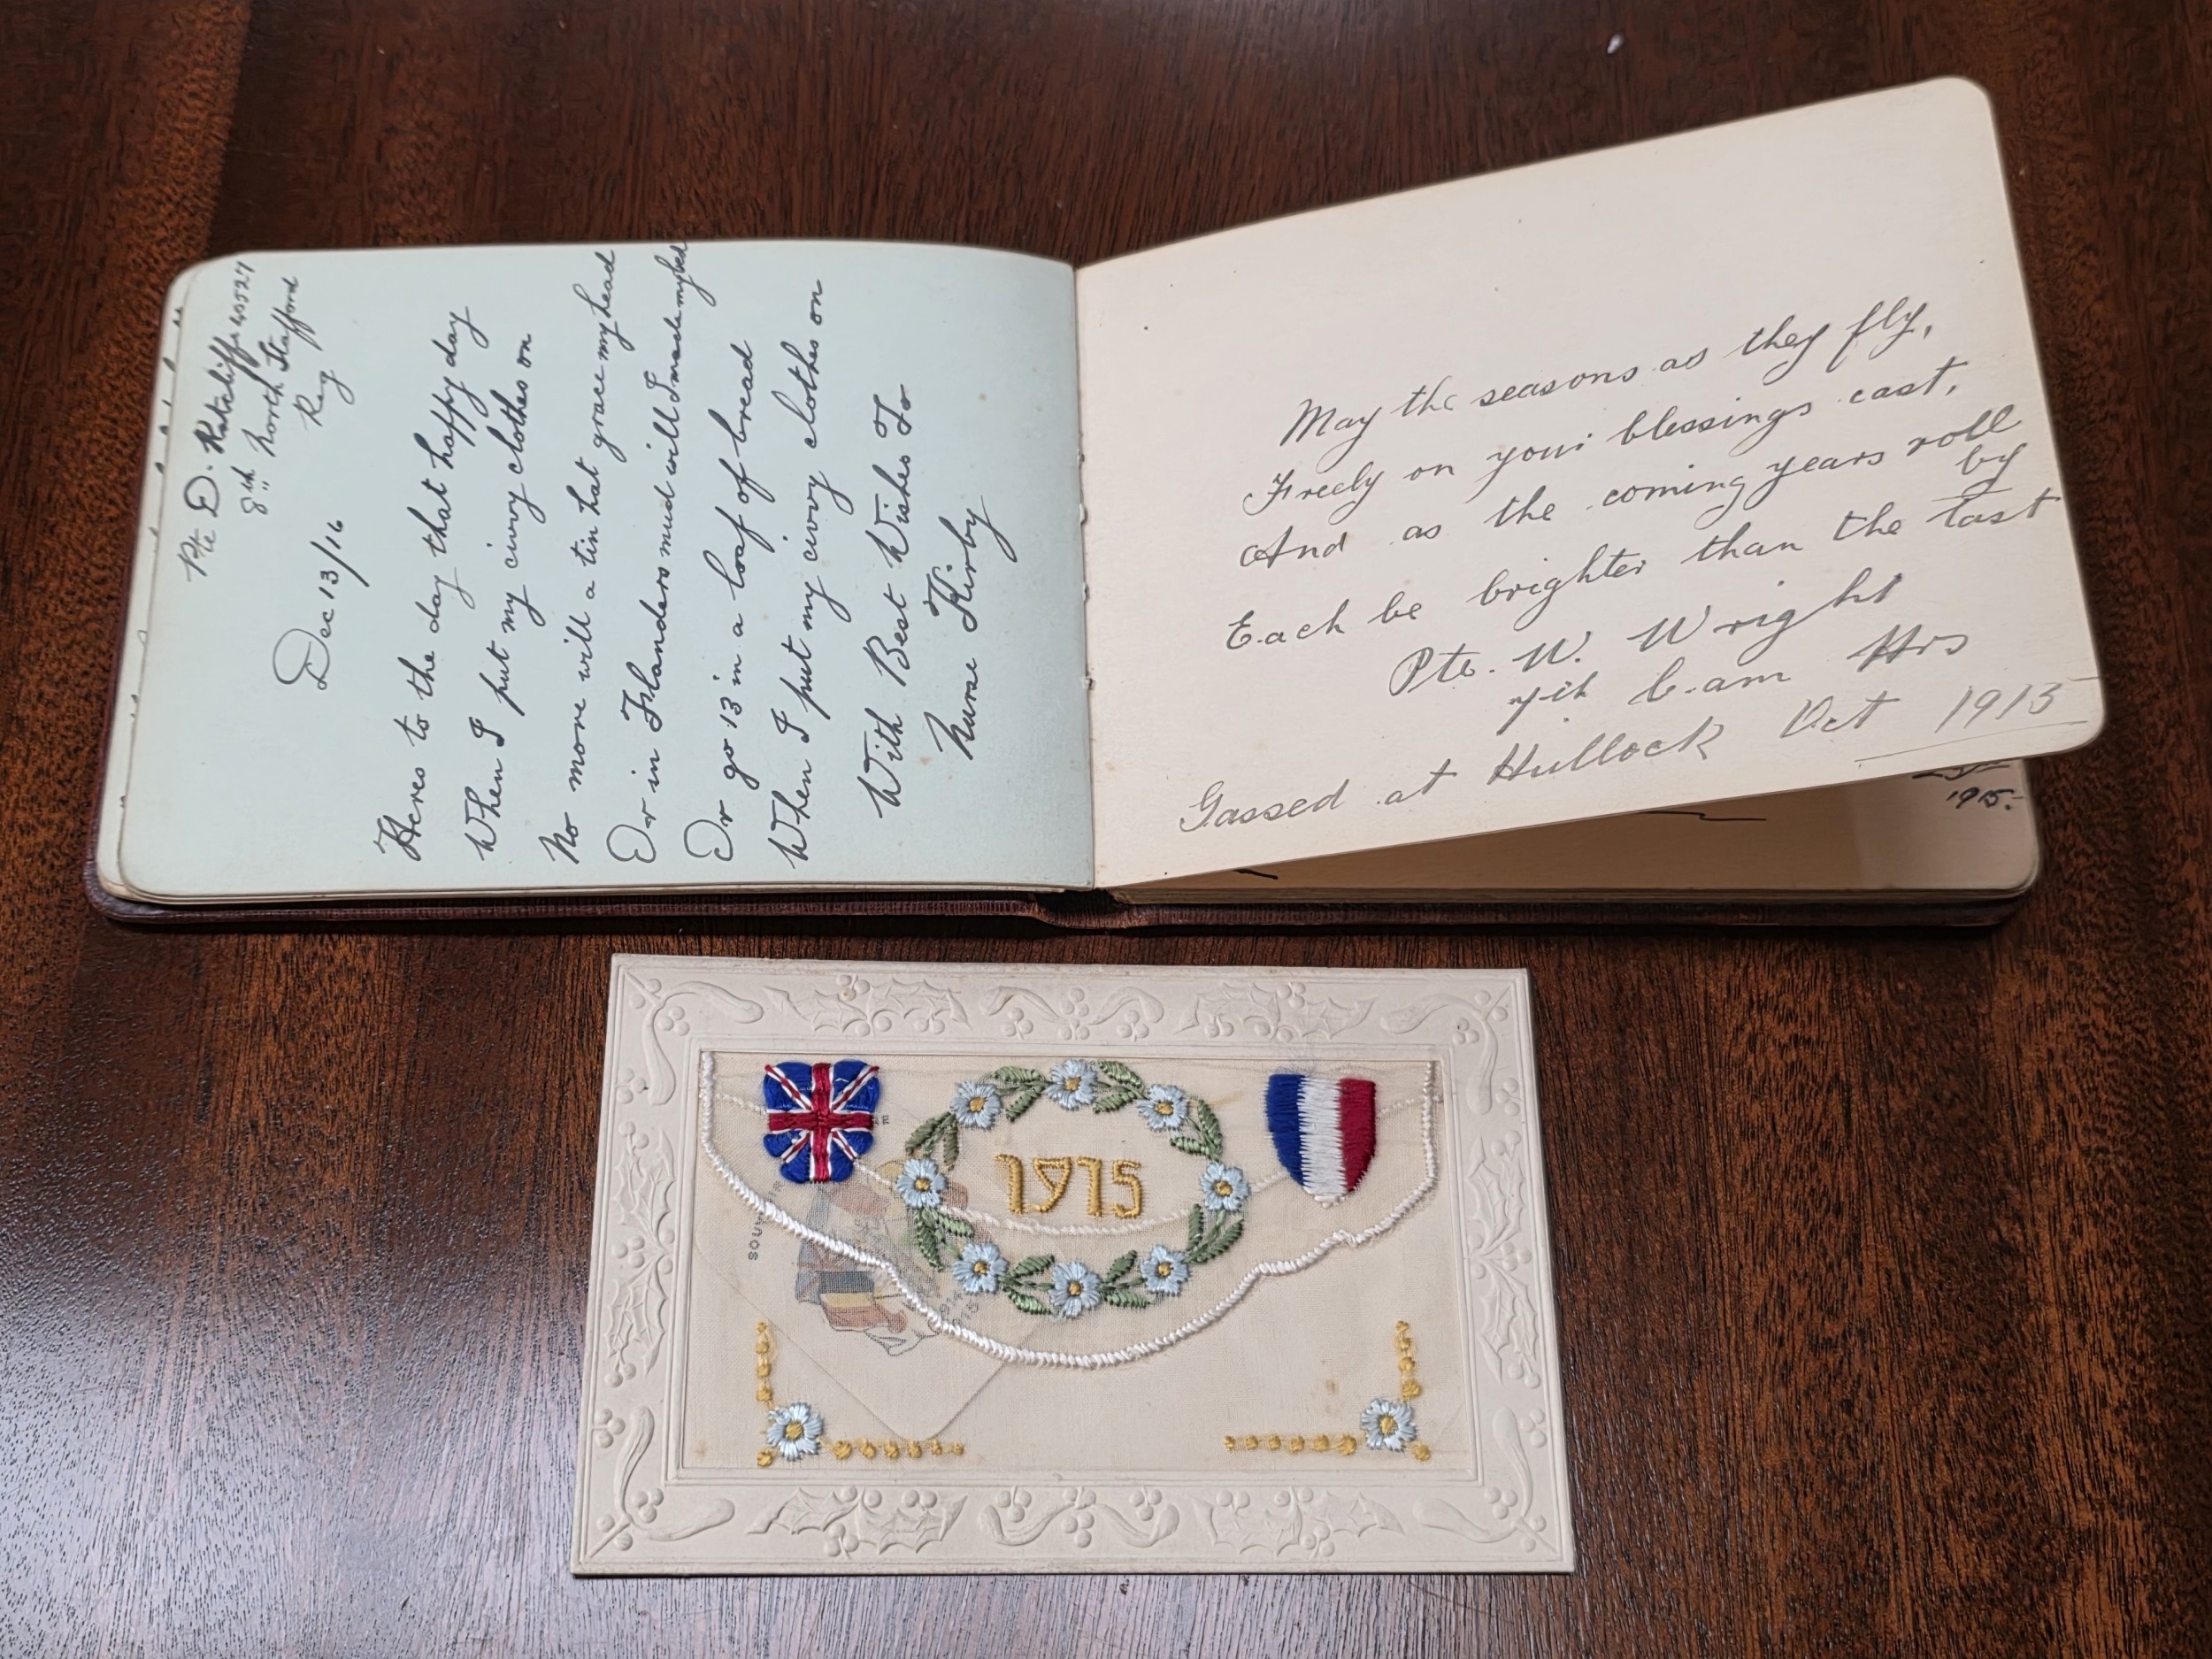 Pte D. Ratcliffe 40527
8th North Stafford
Reg
Dec 13/16
Heres to the day that happy day
When I put my civvy clothes on
No more will a tin hat grace my head
Or in Flanders mud will I make my bed
Or go 13 in a loaf of bread
When I put my civvy clothes on
With Best Wishes To
Nurse Kirby
May the seasons as they fly,
Freely on your blessings cast,
And as the coming years roll
by
Each be brighter than the last
Pte. W. Wright
7th Cam Hrs
Gassed at Hullock Oct 1915
1915.
1915
SOUV
1915